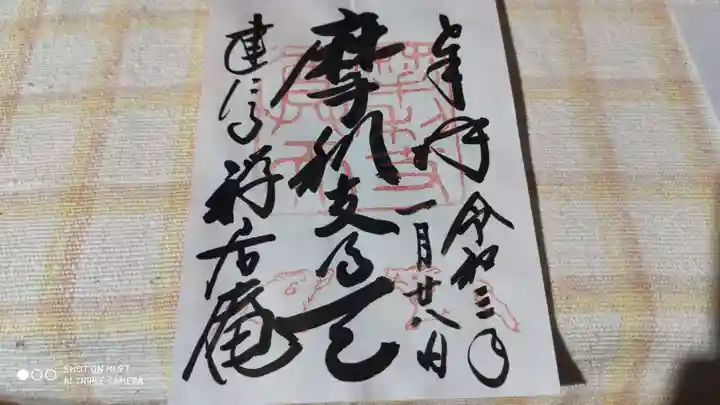 奉拝
令和三年
一月廿八日
摩利支尊天
建仁寺禅居庵
SHOT ON MI 9T
AI TRIPLE CAMERA